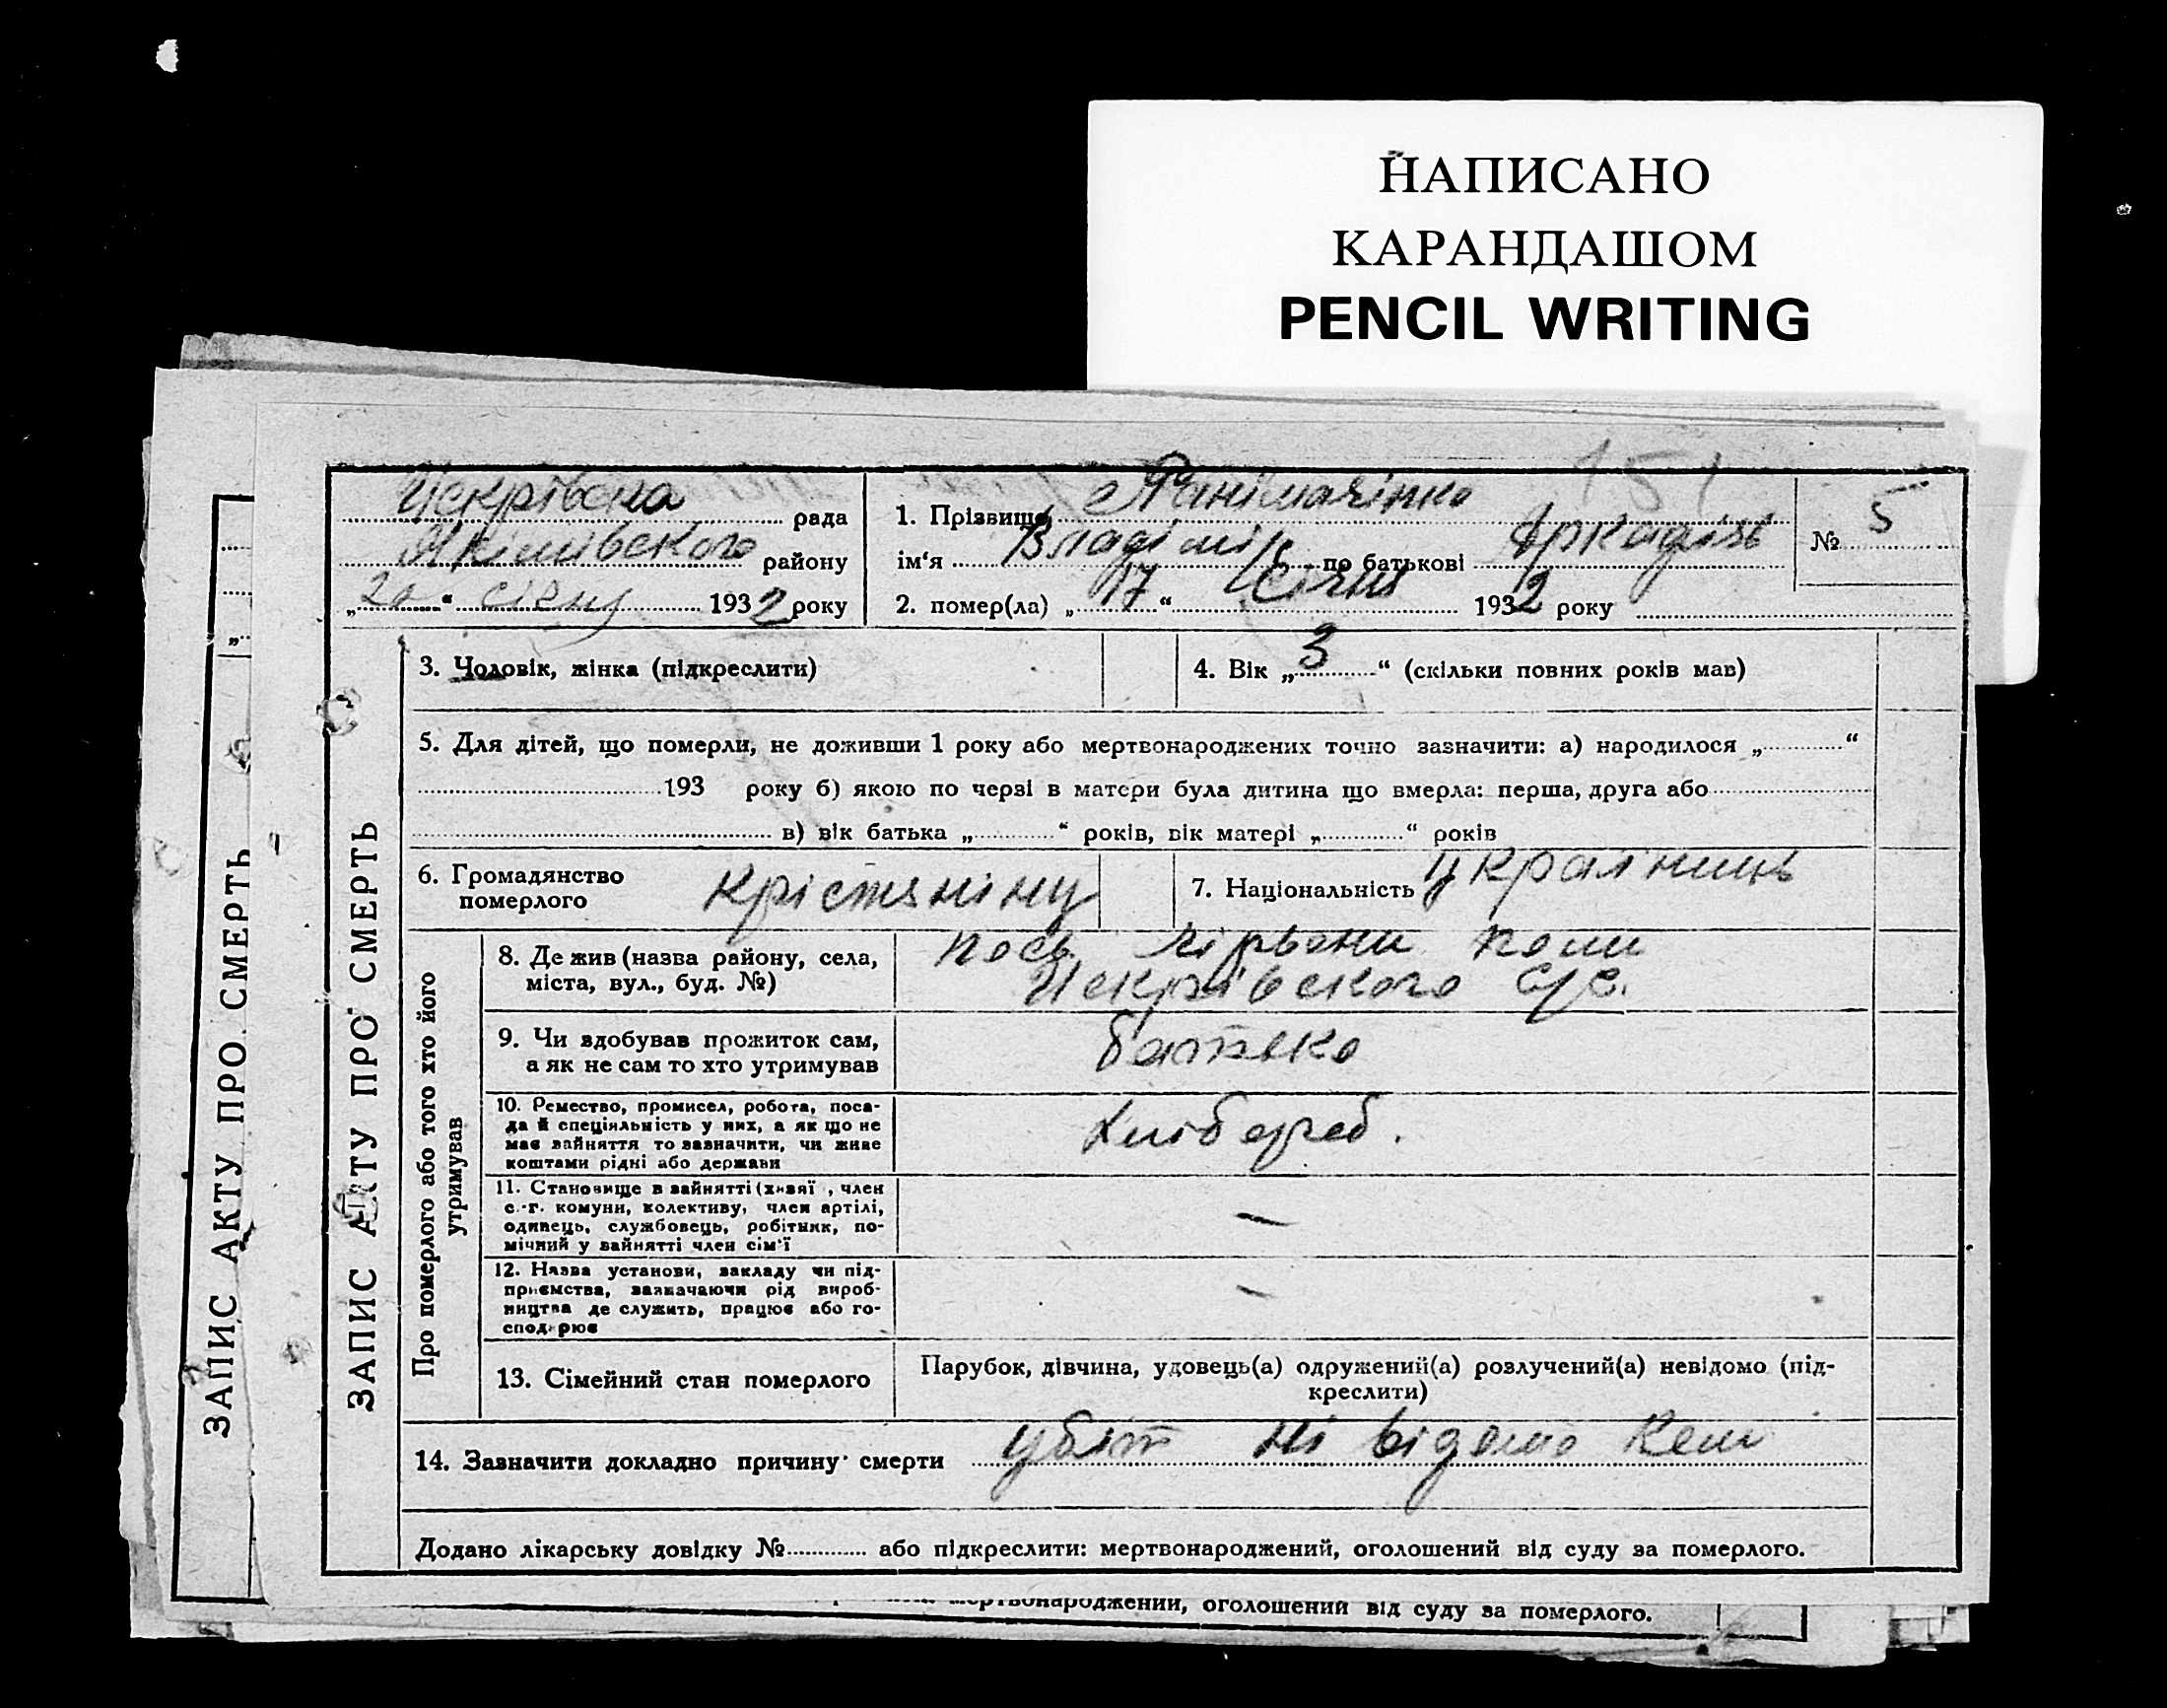 НАПИСАНО
КАРАНДАШОМ
PENCIL WRITING
151
Искрівска рада
Якімівского району
„20“ січня 1932 року
1. Прізвище
№ 5
ім‘я Владімір по батькові Аркадієв
2. помер(ла) „17“ Січня 1932 року
3. Чоловік, жінка (підкреслити)
4. Вік „3“ (скільки повних років мав)
5. Для дітей, що померли, не доживши 1 року або мертвонароджених точно зазначити: а) народилося „ “
193 року б) якою по черзі в матери була дитина що вмерла: перша, друга або
в) вік батька „ “ років, вік матері „ “ років
6. Громадянство померлого крістяніну
7. Національність україниць
ЗАПИС АКТУ ПРО СМЕРТЬ
ЗАПИС АКТУ ПРО СМЕРТЬ
Про померлого або того хто його
утримував
8. Де жив (назва району, села,
міста, вул., буд. №)
пось
Искрівского С/С.
9. Чи здобував прожиток сам,
а як не сам то хто утримував
батько
10. Ремество, промисел, робота, поса-
да й спеціяльність у них, а як що не
має зайняття то зазначити, чи живе
коштами рідні або держави
11. Становище в зайнятті (хазяї , член
с.-г. комуни, колективу, член артілі,
одинець, службовець, робітник, по-
мічний у зайнятті член сім‘ї
—
12. Назва установи, закладу чи під-
приємства, зазначаючи рід вироб-
ництва де служить, працює або го-
сподарює
—
13. Сімейний стан померлого
Парубок, дівчина, удовець(а) одружений(а) розлучений(а) невідомо (під-
креслити)
14. Зазначити докладно причину смерти убіт ні відомо кем
Додано лікарську довідку № або підкреслити: мертвонароджений, оголошений від суду за померлого.
мертвонароджений, оголошений від суду за померлого.